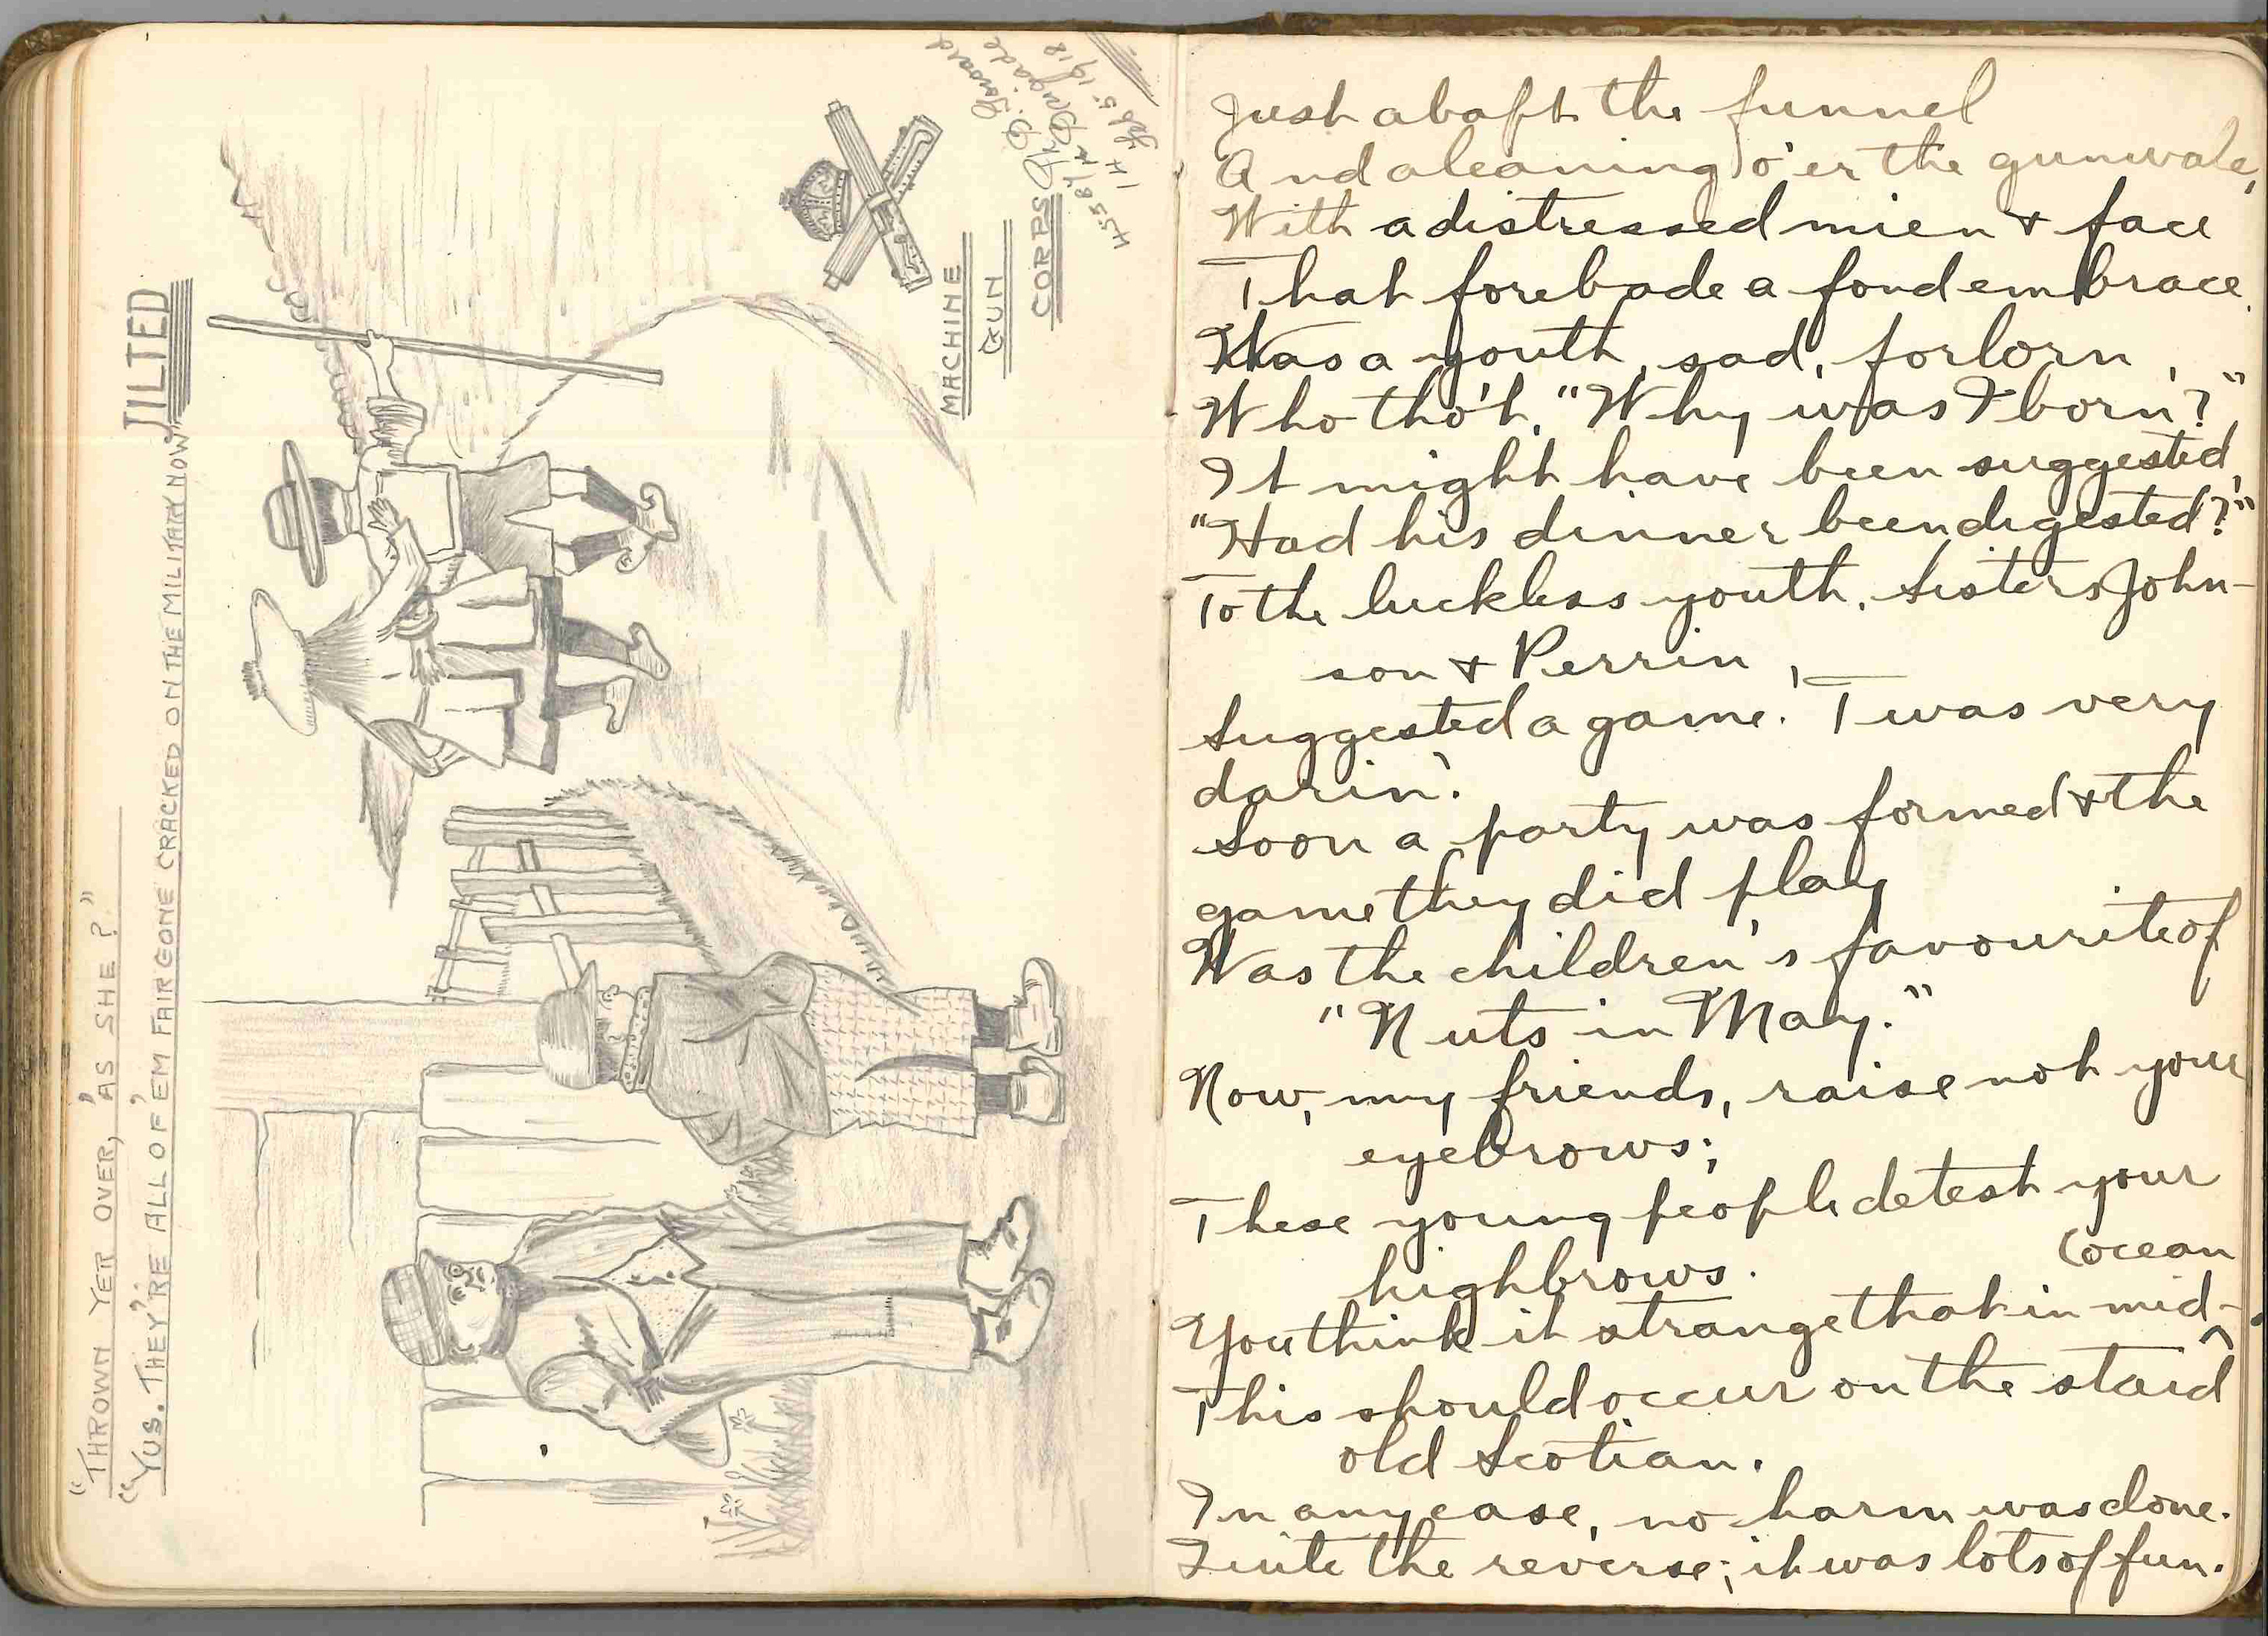 JILTED
"THROWN YER OVER, 'AS SHE?"
"YUS. THEY'RE ALL OF 'EM FAIR GONE CRACKED ON THE MILITARY NOW"
MACHINE
GUN
CORPS
Brigade
14 Feb 5 1918
Just abaft the funnel
And aleaning o'er the gunwale,
With a distressed mien & face
That forebode a fond embrace.
Was a youth, sad, forlorn,
Who tho't, "Why was I born?"
It might have been suggested,
"Had his dinner been digested?"
To the luckless youth, Sisters John-
son & Perrin,
Suggested a game. 'Twas very
darin'.
Soon a party was formed & the
game they did play
Was the children's favourite of
"Nuts in May."
Now, my friends, raise not your
eyebrows;
These young people detest your
highbrows.
You think it strange that in mid-
(ocean
This should occur on the staid
old Scotian.
In any case, no harm was done.
Quite the reverse; it was lots of fun.